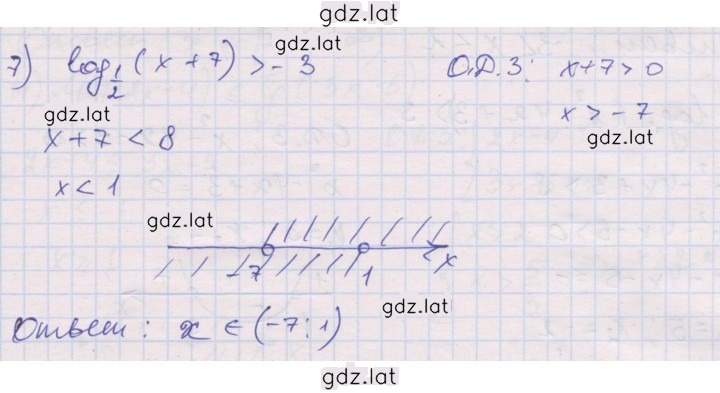 gdz.lat
7) log_{1/2} (x + 7) > - 3 О.Д.З: x+7 > 0
gdz.lat
x > - 7
gdz.lat
gdz.lat
x + 7 < 8
x < 1
gdz.lat
-7 1 x
gdz.lat
Ответ: x ∈ (-7; 1)
gdz.lat